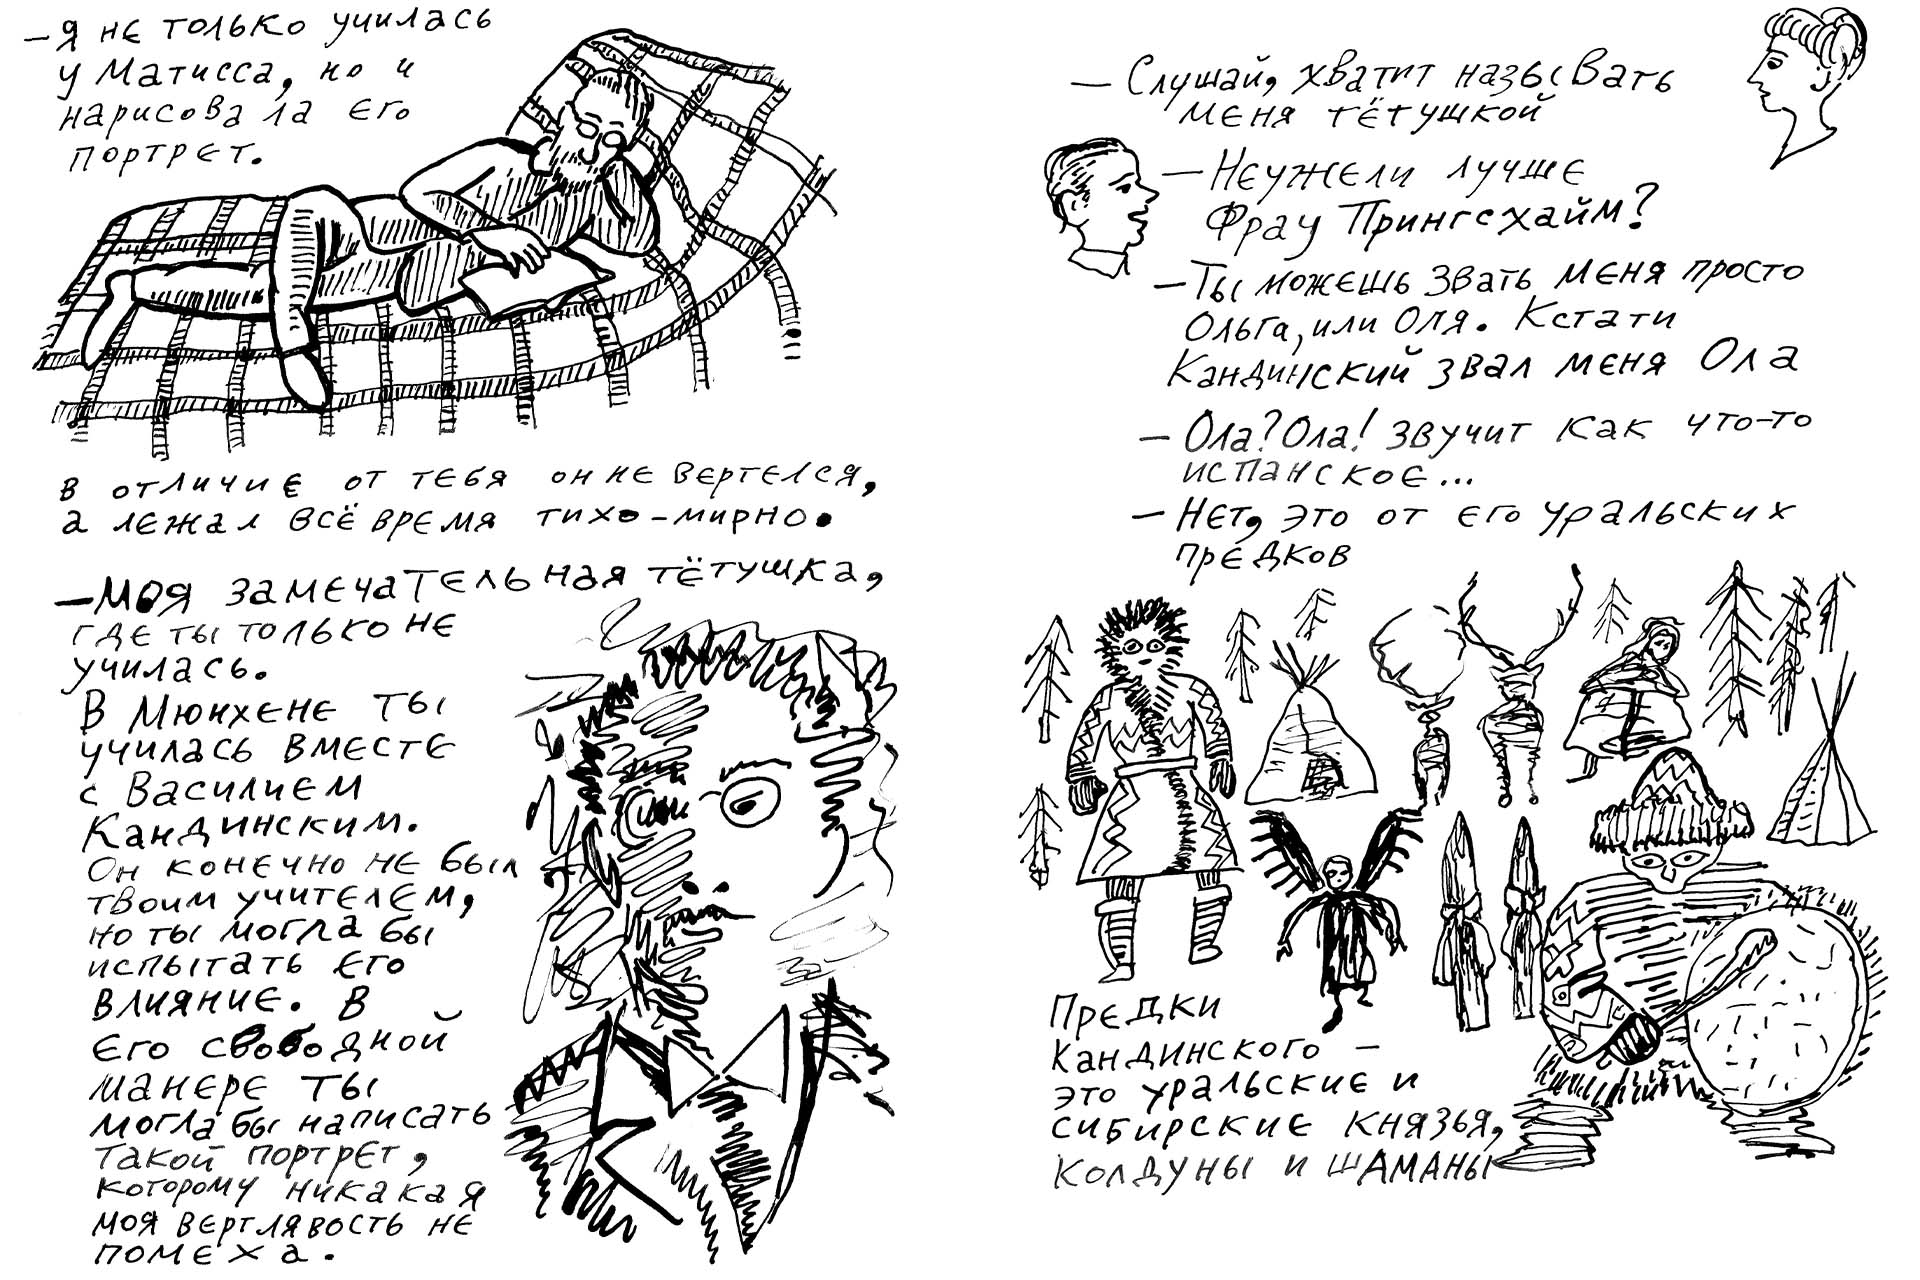 — Я не только училась
у Матисса, но и
нарисовала его
портрет.
в отличие от тебя он не вертелся,
а лежал всё время тихо-мирно.
— Моя замечательная тётушка,
где ты только не
училась.
В Мюнхене ты
училась вместе
с Василием
Кандинским.
Он конечно не был
твоим учителем,
но ты могла бы
испытать его
влияние. В
его свободной
манере ты
могла бы написать
такой портрет,
которому никакая
моя вертлявость не
помеха.
— Слушай, хватит называть
меня тётушкой
— Неужели лучше
Фрау Прингсхайм?
— Ты можешь звать меня просто
Ольга, или Оля. Кстати
Кандинский звал меня Ола
— Ола? Ола! звучит как что-то
испанское...
— Нет, это от его уральских
предков
Предки
Кандинского —
это уральские и
сибирские князья,
колдуны и шаманы